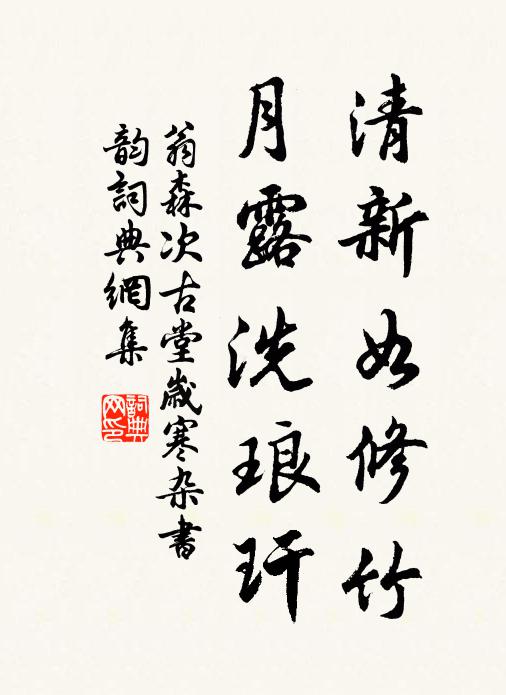 清新如修竹
月露洗琅玕
翁森次古堂歲寒杂書
韵詞典網集
詞典網印